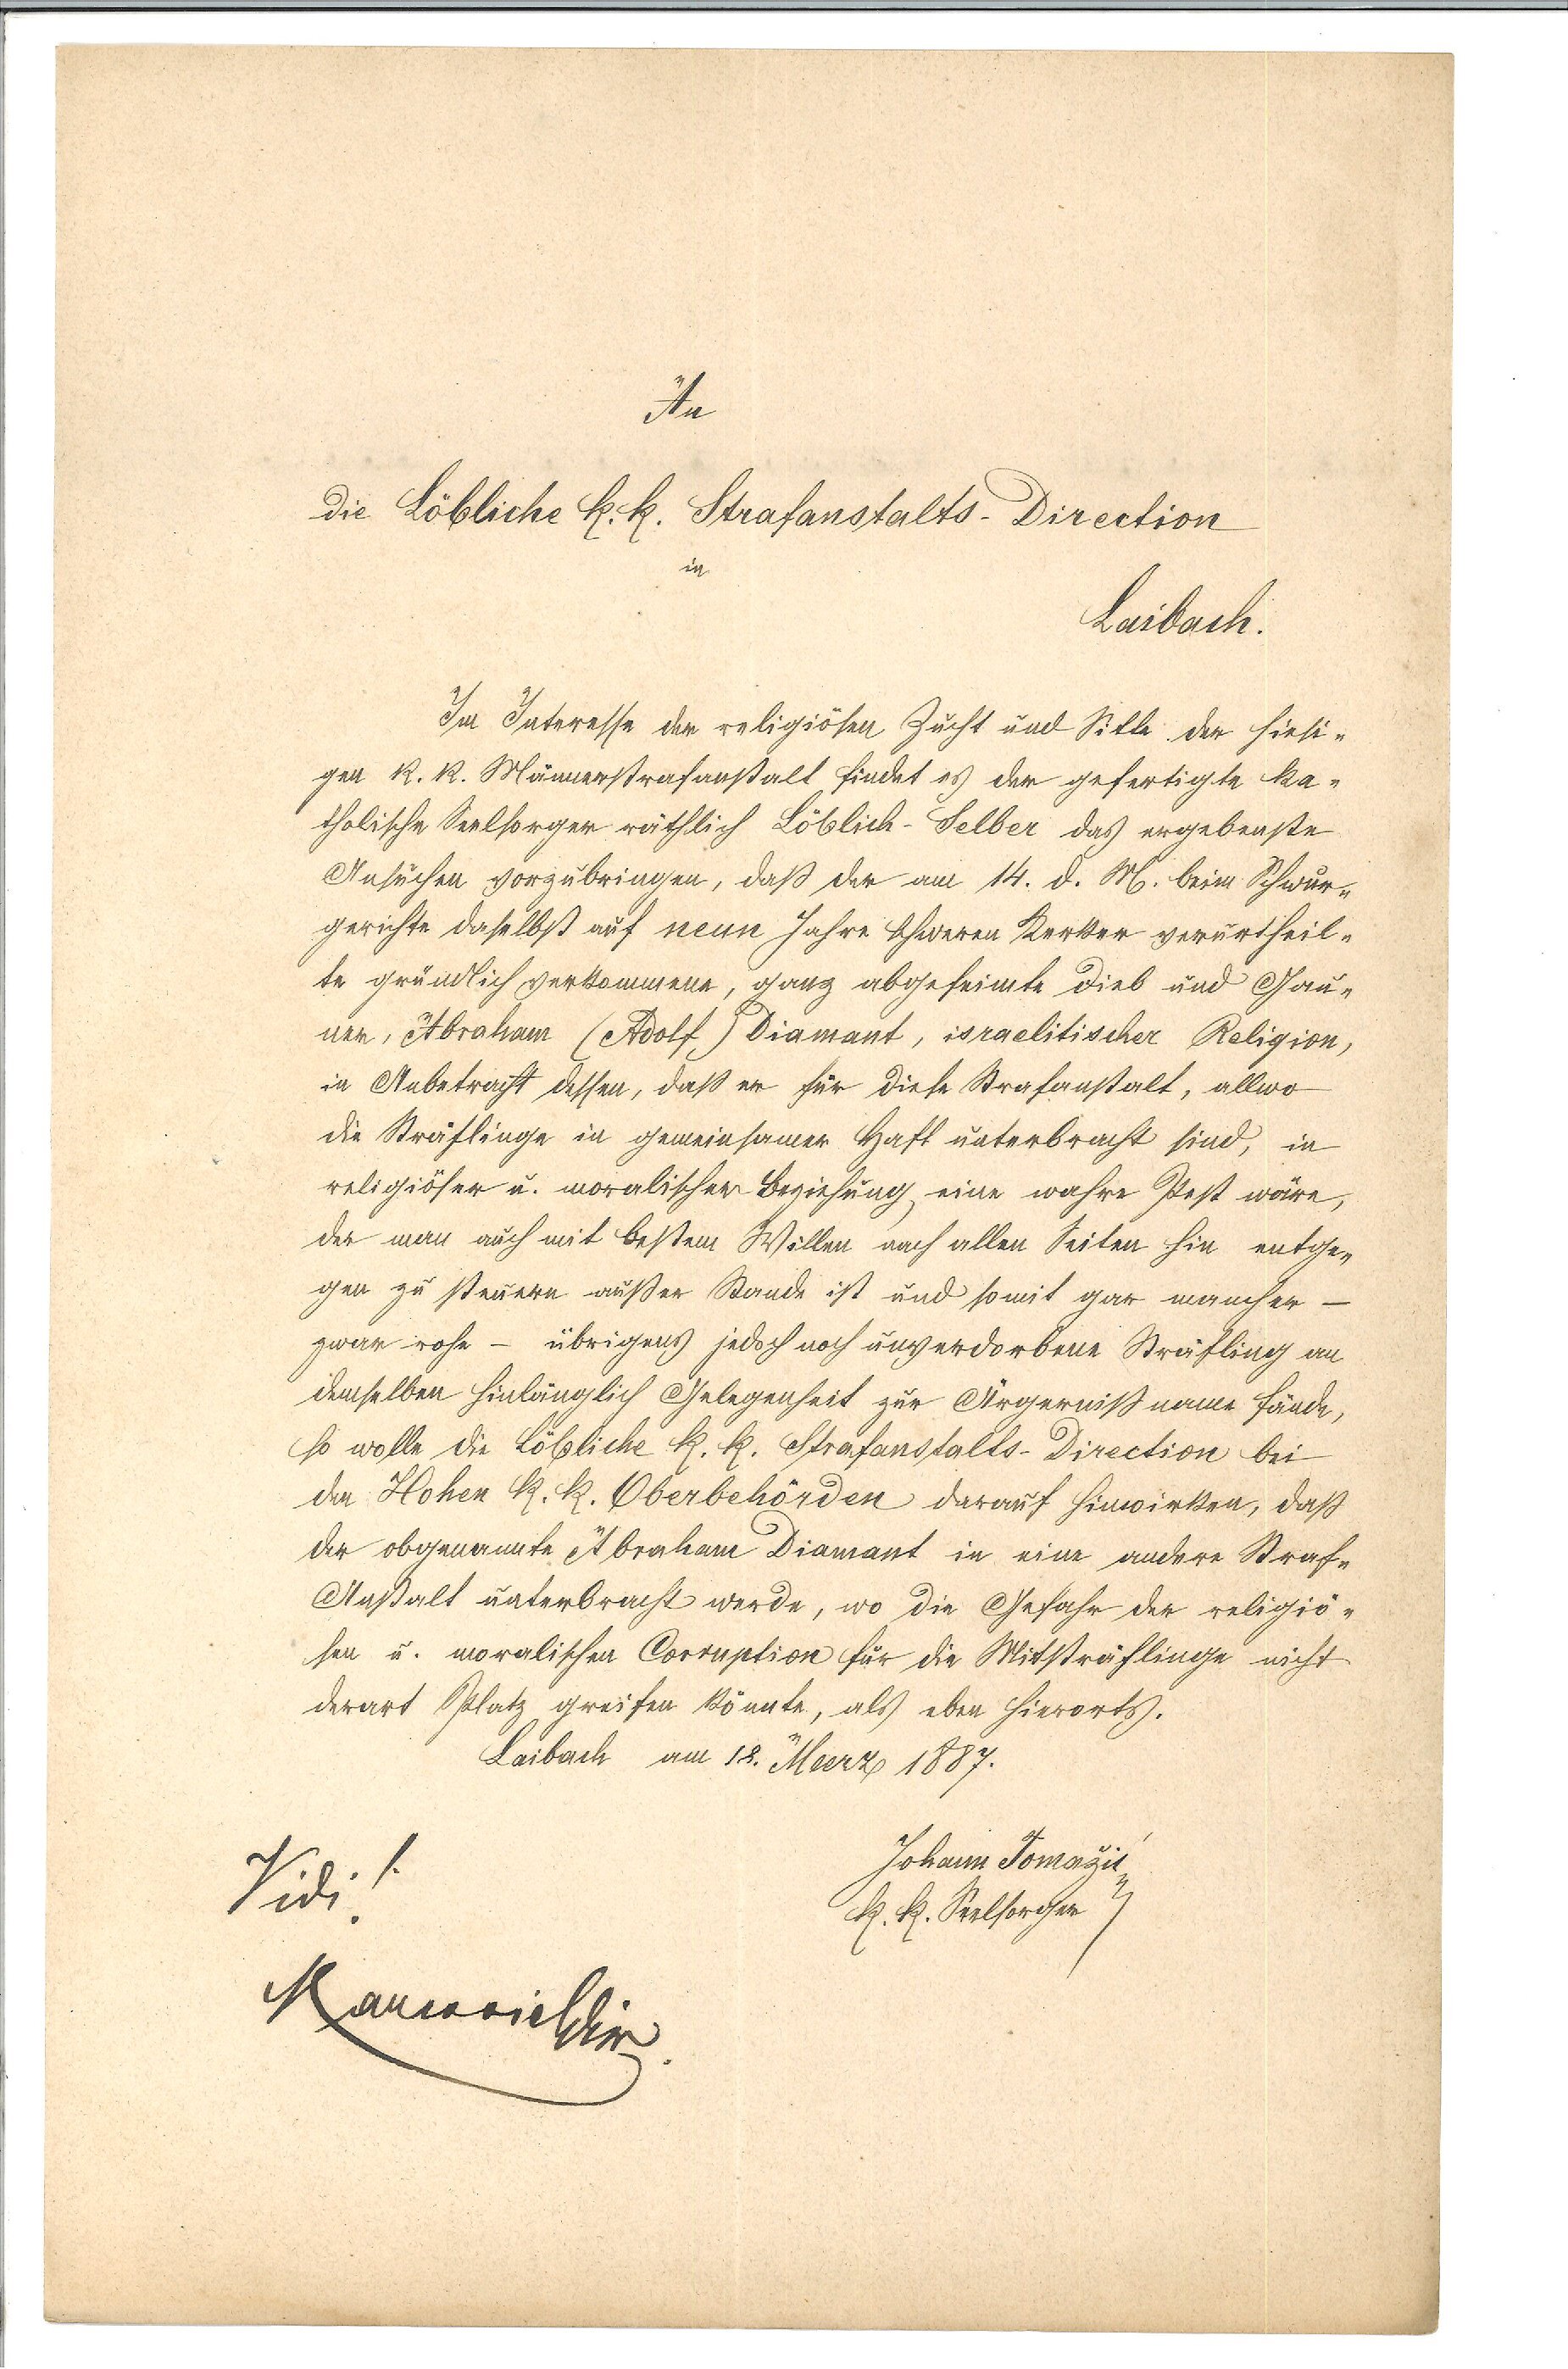 An
die Löbliche k. k. Strafanstalts-Direction
in
Laibach.
Im Interesse der religiösen Zucht und Sitte der hiesi-
gen k. k. Männerstrafanstalt findet es der gefertigte ka-
tholische Seelsorger räthlich Löblich-Selber das ergebenste
Ansuchen vorzubringen, daß der am 14. d. M. beim Schwur-
gerichte daselbst auf neun Jahre schweren Kerker verurtheil-
te gründlich verkommene, ganz abgefeimte Dieb und Gau-
ner, Abraham (Adolf) Diamant, israelitischer Religion,
in Anbetracht dessen, daß er für diese Strafanstalt, allwo
die Sträflinge in gemeinsamer Haft unterbracht sind, in
religiöser u. moralischer Beziehung eine wahre Pest wäre,
der man auch mit bestem Willen nach allen Seiten hin entge-
gen zu steuern außer Stande ist und somit gar mancher –
zwar rohe – übrigens jedoch noch unverdorbene Sträfling an
demselben hinlänglich Gelegenheit zur Ärgernißname fände,
so wolle die Löbliche k. k. Strafanstalts-Direction bei
den Hohen k. k. Oberbehörden darauf hinwirken, daß
der obgenannte Abraham Diamant in eine andere Straf-
Anstalt unterbracht werde, wo die Gefahr der religiö-
sen u. moralischen Corruption für die Mitsträflinge nicht
derart Platz greifen könnte, als eben hierorts.
Laibach am 18. Maerz 1887.
Johann Tomažič
k. k. Seelsorger
Vidi!
Dir.